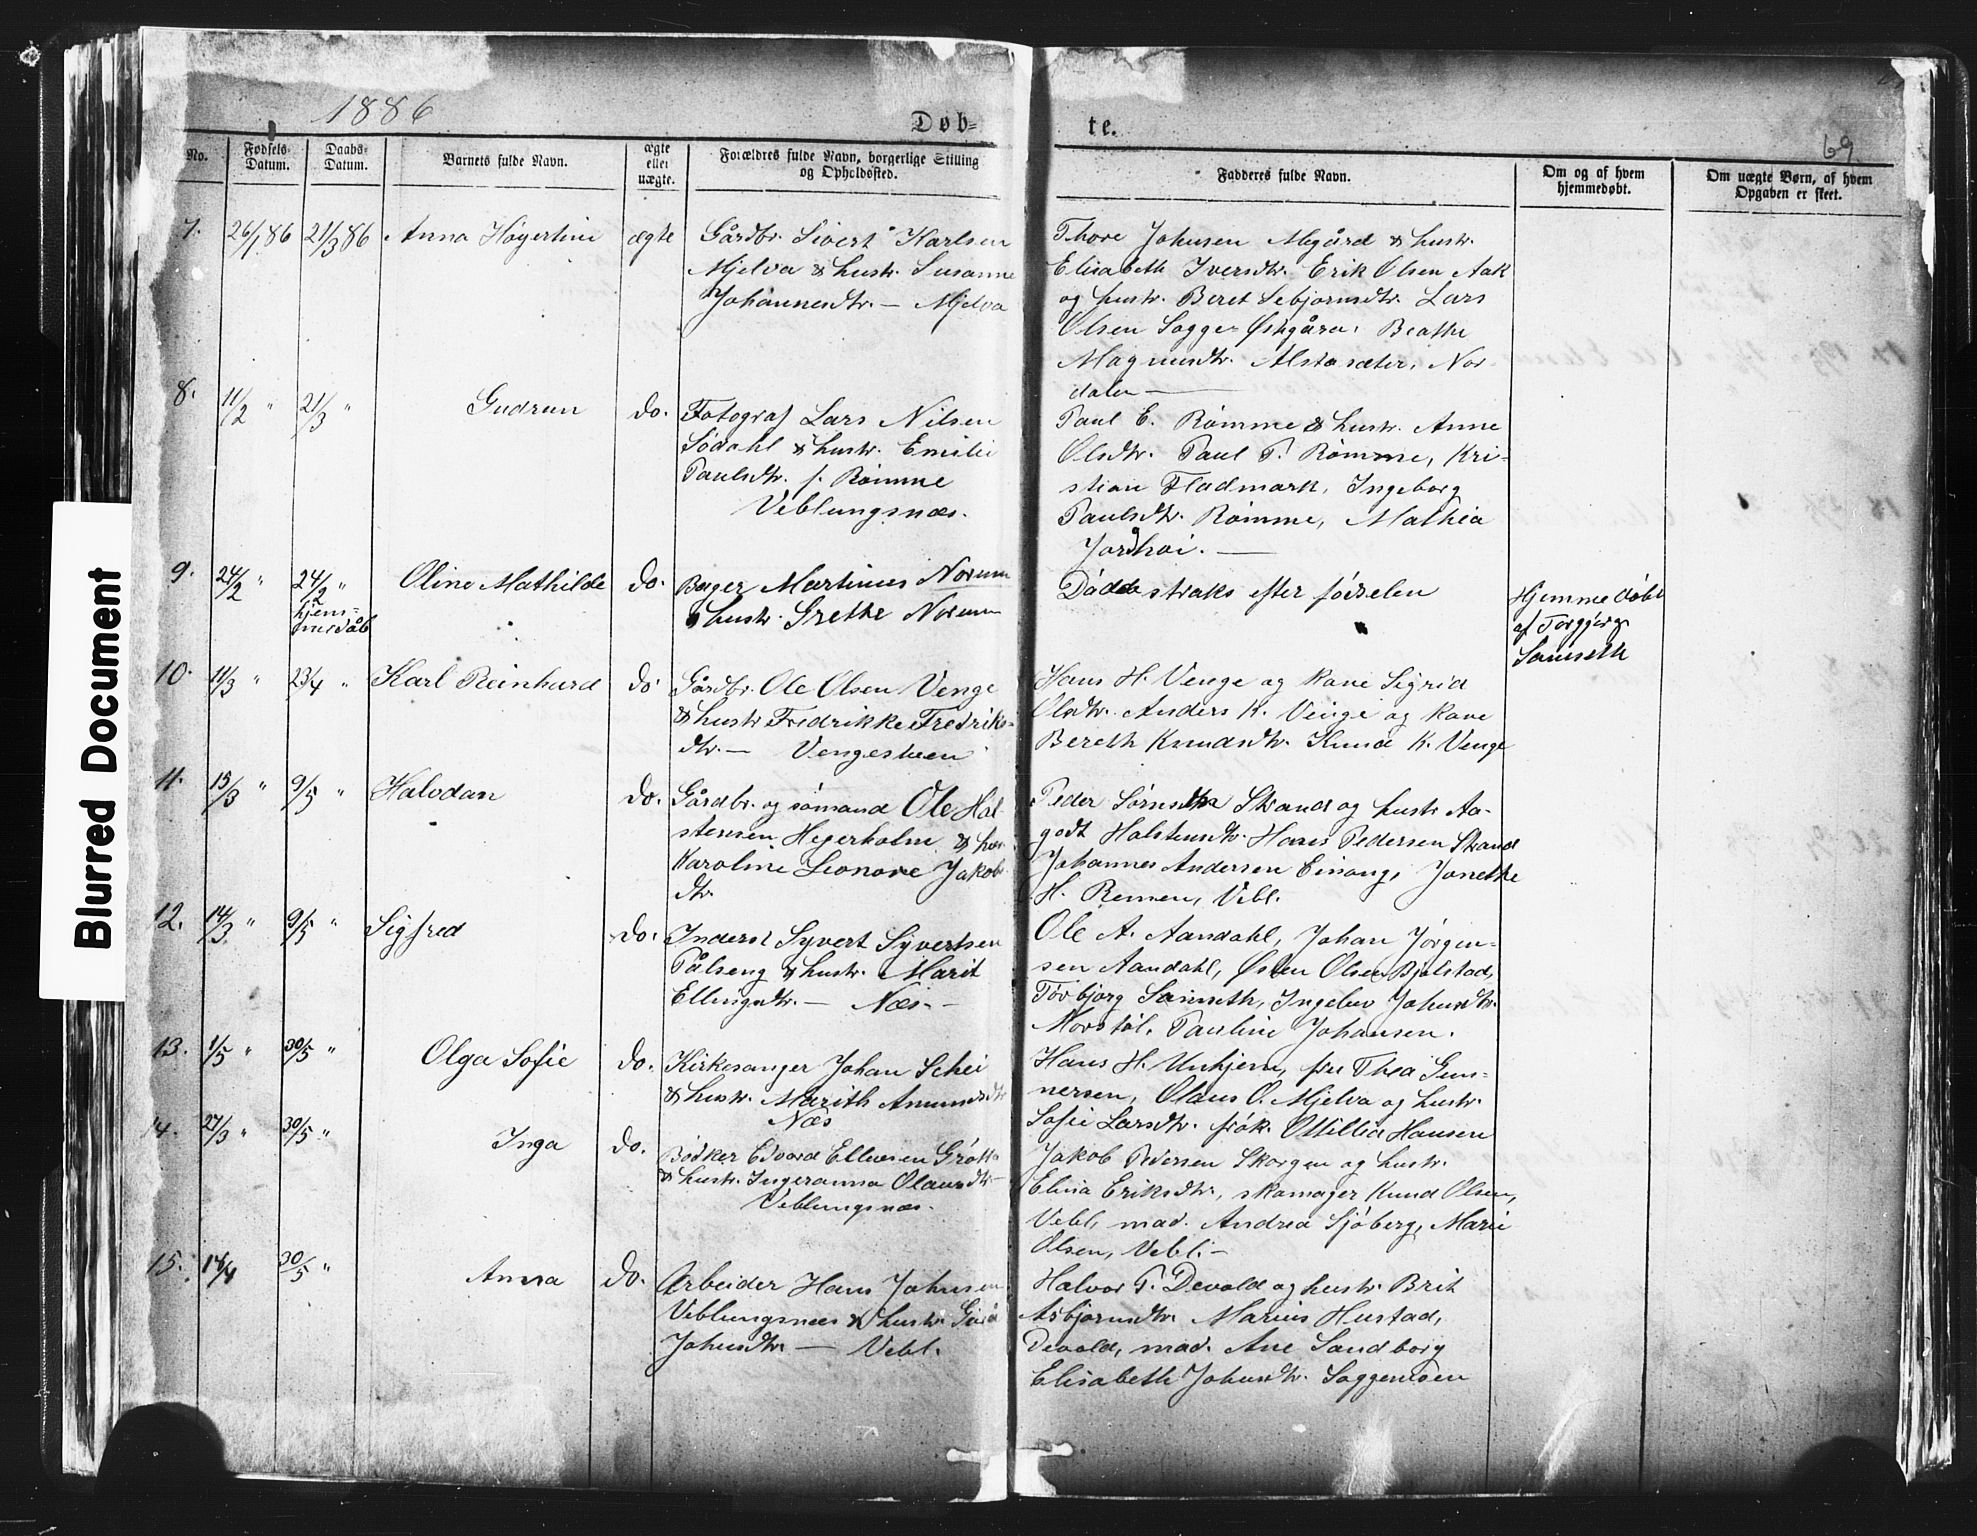 1886
Døb-
te.
69
No.
Fødsels-
Datum.
Daabs-
Datum.
Barnets fulde Navn.
ægte
eller
uægte.
Forældres fulde Navn, borgerlige Stilling
og Opholdssted.
Fadderes fulde Navn.
Om og af hvem
hjemmedøbt.
Om uægte Børn, af hvem
Opgaven er skeet.
Blurred Document
7. 26/1 86 21/3 86 Anna Høgertine ægte
Gårdbr. Sivert Karlsen
Mjelva & hustr. Susanne
Johannesdtr. — Mjelva
Thore Johnsen Megård & hustr.
Elisabeth Iversdtr. Erik Olsen Aak
og hustr. Beret Sebjørnsdtr. Lars
Olsen Sogge Østigård, Beathe
Magnusdtr. Alstasæter, Nor-
dalen —
8. 11/2 " 21/3 " Gudrun do.
Fotograf Lars Nilsen
Sødahl & hustr. Emilie
Paulsdtr. f. Rømme
Veblungsnæs.
Paul E. Rømme & hustr. Anne
Olsdtr. Paul P. Rømme, Kri-
stian Fladmark, Ingeborg
Paulsdtr. Rømme, Mathea
Jordhøi. —
9. 24/2 " 24/2 " Oline Mathilde do.
hjem-
medåb
Bager Martinus Norum
& hustr. Grethe Norum
Døde straks efter fødselen
Hjemmedøbt
af Torgjerg
Samseth
10. 11/3 " 23/4 " Karl Reinhard do
Gårdbr. Ole Olsen Venge
& hustr Fredrikke Fredriks-
dtr. — Vengesteen
Hans H. Venge og kone Sigrid
Olsdtr. Anders K. Venge og kone
Bereth Knudsdtr. Knud K. Venge
11. 15/3 " 9/5 " Halvdan do.
Gårdbr. og sømand Ole Hal-
stensen Hejerholm & hus
Karoline Leonore Jakobs
dtr.
Peder Strand og hustr Aa-
godt Halstensdtr. Hans Pedersen Strand
Johannes Andersen Einang, Jonethe
H. Remen, Vebl.
12. 14/3 " 9/5 " Sigfred do.
Inderst Syvert Syvertsen
Pålseng & hustr. Marit
Ellingsdtr. — Næs —
Ole A. Aandahl, Johan Jørgen-
sen Aandahl, Østen Olsen Bjølstad,
Torbjørg Samseth, Ingebor Johnsdtr.
Morstøl, Pauline Johansen.
13. 1/5 " 30/5 " Olga Sofie do.
Kirkesanger Johan Schei
& hustr. Marith Amundsdtr
Næs
Hans H. Unhjem, fru Thea Gun-
nersen, Olaus O. Mjelva og hustr.
Sofie Larsdtr. frøk. Ottillia Hansen
14. 27/3 " 30/5 " Inga do.
Bødker Edvard Ellevsen Grøtta
& hustr. Ingeranna Olausdtr —
Veblungsnæs.
Jakob Pedersen Skorgen og hustr.
Elina Eriksdtr., skomager Knud Olsen,
Vebl, mad. Andrea Sjøberg, Marie
Olsen, Vebl. —
15. 14/4 30/5 " Anna do.
Arbeider Hans Johnsen
Veblungsnæs & hustr.
Johnsdtr. — Vebl.
Halvor T. Devold og hustr. Brit
Asbjørnsdtr. Marius Hustad,
Devold, mad. Ane Sandborg
Elisabeth Johnsdtr. Soggemoen